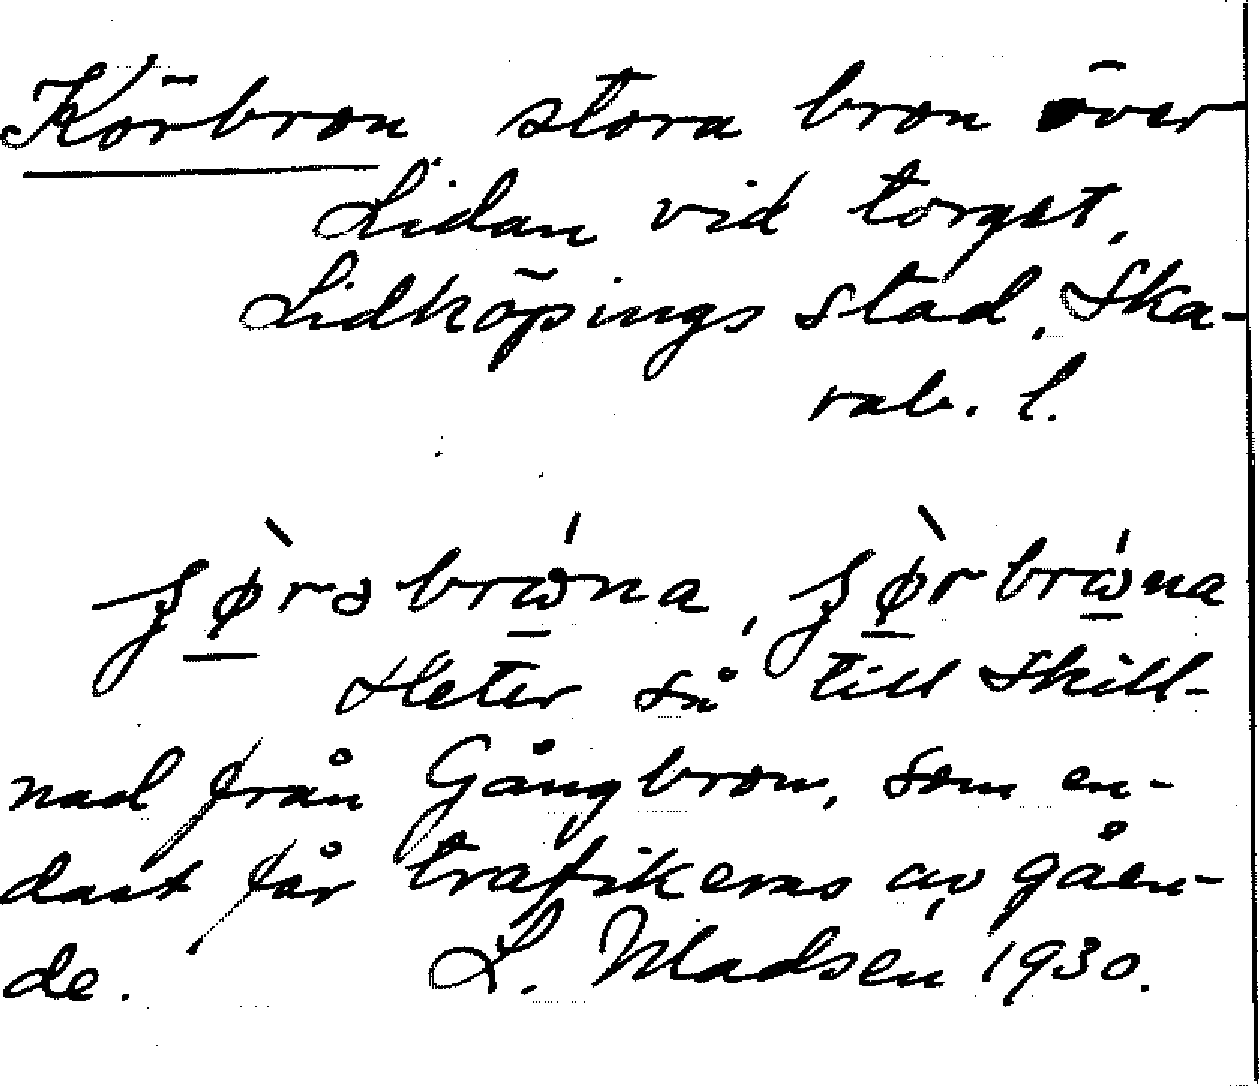 Körbron stora bron över
Lidan vid torget,
Lidköpings stad, Ska-
rab. l.
Heter så till skill-
nad från Gångbron, som en-
dast får trafikeras av gåen-
de. L. Madsen 1930.